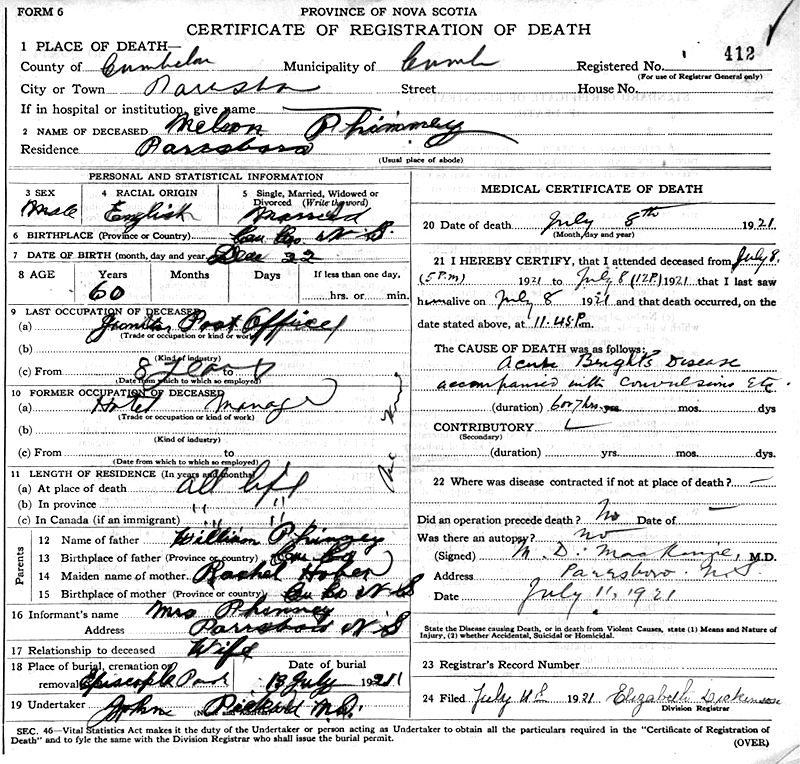 FORM 6
PROVINCE OF NOVA SCOTIA
CERTIFICATE OF REGISTRATION OF DEATH
412
1 PLACE OF DEATH—
County of Municipality of Registered No.
(For use of Registrar General only)
City or Town Street House No.
If in hospital or institution, give name
2 NAME OF DECEASED Melson Phinney
Residence Parrsboro
(Usual place of abode)
PERSONAL AND STATISTICAL INFORMATION
3 SEX Male
4 RACIAL ORIGIN English
5 Single, Married, Widowed or Divorced (Write the word) Married
6 BIRTHPLACE (Province or Country) N S.
7 DATE OF BIRTH (month, day and year) 22
8 AGE Years Months Days If less than one day,
60 hrs. or min.
9 LAST OCCUPATION OF DECEASED
(a) Post Office
(Trade or occupation or kind of work)
(b)
(Kind of industry)
(c) From 8 years to
(Date from which to which so employed)
10 FORMER OCCUPATION OF DECEASED
(a) Hotel Manager
(Trade or occupation or kind of work)
(b)
(Kind of industry)
(c) From to
(Date from which to which so employed)
11 LENGTH OF RESIDENCE (In years and months)
(a) At place of death all life
(b) In province " "
(c) In Canada (if an immigrant) " "
Parents
12 Name of father William Phinney
13 Birthplace of father (Province or country)
14 Maiden name of mother Rachel
15 Birthplace of mother (Province or country) N S
16 Informant's name Mrs Phinney
Address Parrsboro N S
17 Relationship to deceased Wife
18 Place of burial, cremation or removal Date of burial
13 July 1921
19 Undertaker John
(Name and Address)
MEDICAL CERTIFICATE OF DEATH
20 Date of death July 8th 1921
(Month, day and year)
21 I HEREBY CERTIFY, that I attended deceased from July 8.
(5 P.m) 1921 to July 8 (12 P.) 1921 that I last saw
him alive on July 8 1921 and that death occurred, on the
date stated above, at 11.45 P.m.
The CAUSE OF DEATH was as follows:
Acute Bright's Disease
accompanied with Convulsions Etc.
(duration) 6 or 7 hrs yrs. mos. dys
CONTRIBUTORY
(Secondary)
(duration) yrs. mos. dys.
22 Where was disease contracted if not at place of death? —
Did an operation precede death? No Date of —
Was there an autopsy? No
(Signed) M. D. MacKenzie, M.D.
Address Parrsboro N S
Date July 11, 1921
State the Disease causing Death, or in death from Violent Causes, state (1) Means and Nature of
Injury, (2) whether Accidental, Suicidal or Homicidal.
23 Registrar's Record Number
24 Filed July 1921 Elizabeth
Division Registrar
SEC. 46—Vital Statistics Act makes it the duty of the Undertaker or person acting as Undertaker to obtain all the particulars required in the "Certificate of Registration of
Death" and to fyle the same with the Division Registrar who shall issue the burial permit.
(OVER)